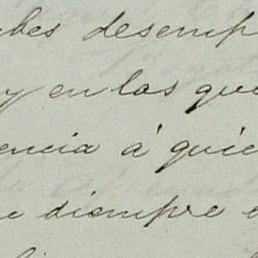 desemp
y en los que
encia á quie
e siempre